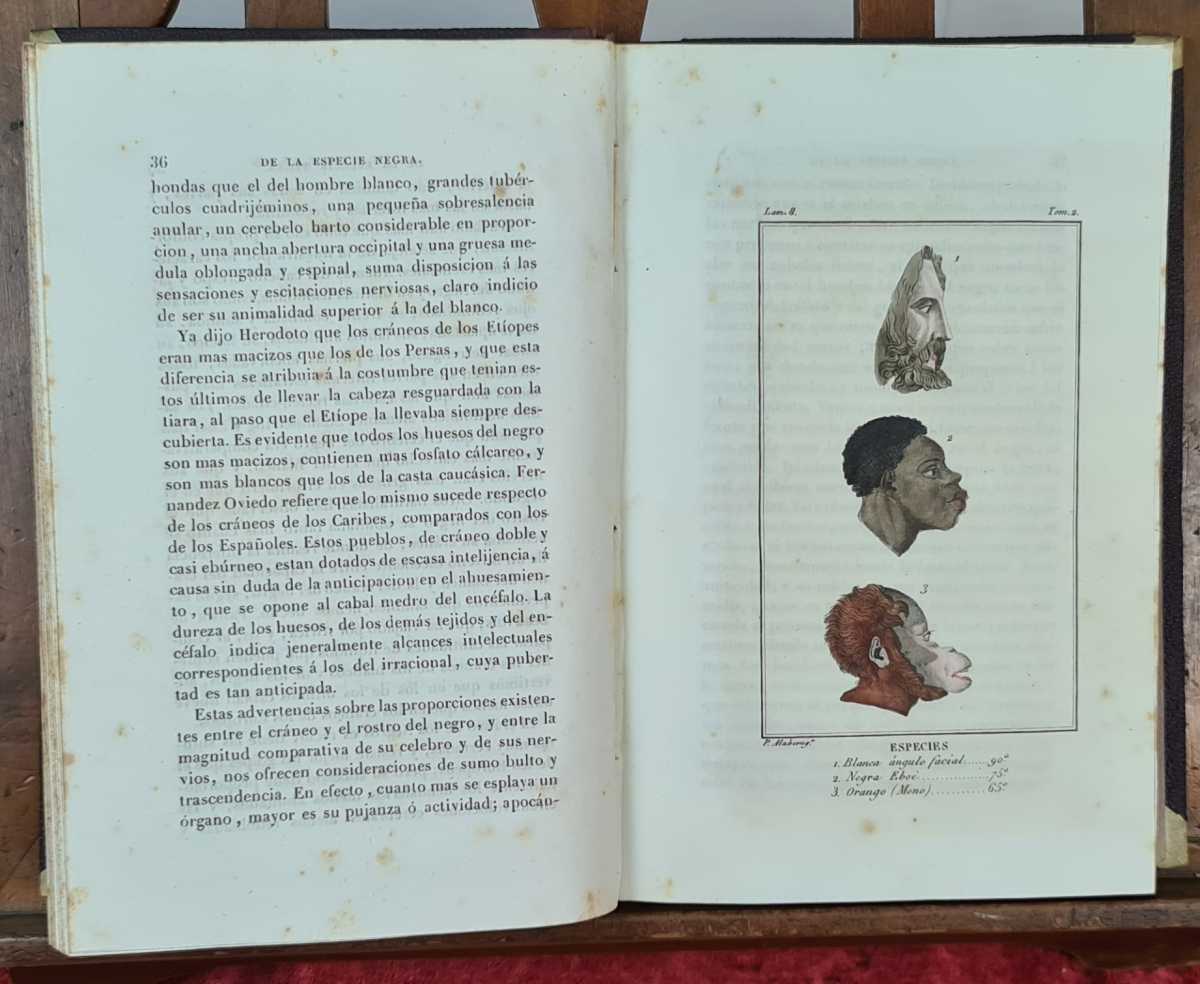 36 DE LA ESPECIE NEGRA.
hondas que el del hombre blanco, grandes tubér-
culos cuadrijéminos, una pequeña sobresalencia
anular, un cerebelo harto considerable en propor-
cion, una ancha abertura occipital y una gruesa me-
dula oblongada y espinal, suma disposicion á las
sensaciones y escitaciones nerviosas, claro indicio
de ser su animalidad superior á la del blanco.
Ya dijo Herodoto que los cráneos de los Etíopes
eran mas macizos que los de los Persas, y que esta
diferencia se atribuia á la costumbre que tenian es-
tos últimos de llevar la cabeza resguardada con la
tiara, al paso que el Etíope la llevaba siempre des-
cubierta. Es evidente que todos los huesos del negro
son mas macizos, contienen mas fosfato cálcareo, y
son mas blancos que los de la casta caucásica. Fer-
nandez Oviedo refiere que lo mismo sucede respecto
de los cráneos de los Caribes, comparados con los
de los Españoles. Estos pueblos, de cráneo doble y
casi ebúrneo, estan dotados de escasa intelijencia, á
causa sin duda de la anticipacion en el ahuesamien-
to, que se opone al cabal medro del encéfalo. La
dureza de los huesos, de los demás tejidos y del en-
céfalo indica jeneralmente alcances intelectuales
correspondientes á los del irracional, cuya puber-
tad es tan anticipada.
Estas advertencias sobre las proporciones existen-
tes entre el cráneo y el rostro del negro, y entre la
magnitud comparativa de su celebro y de sus ner-
vios, nos ofrecen consideraciones de sumo bulto y
trascendencia. En efecto, cuanto mas se esplaya un
órgano, mayor es su pujanza ó actividad; apocán-
Lam. 8. Tom. 2.
1
2
3
ESPECIES
1. Blanca ángulo facial......90°
2. Negra Eboe................75°
3. Orango (Mono)...........65°